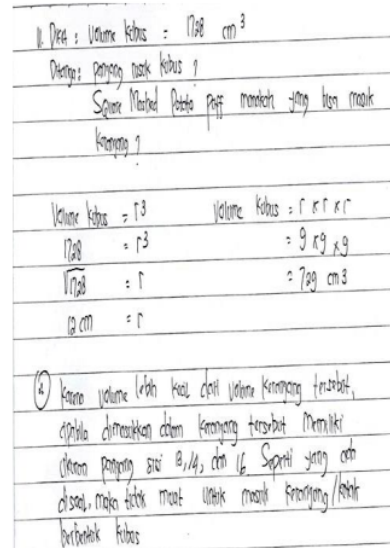 11. Diket : Volume kubus = 1728 cm³
Ditanya : panjang rusuk kubus ?
Square Mashed Potato puff manakah yang bisa masuk
keranjang ?
Volume kubus = r³
1728 = r³
√1728 = r
12 cm = r
Volume kubus = r x r x r
= 9 x 9 x 9
= 729 cm3
2 Karena volume lebih kecil dari volume keranjang tersebut,
apabila dimasukkan dalam keranjang tersebut memiliki
ukuran panjang sisi 13, 14, dan 16. Seperti yang ada
disoal, maka tidak muat untuk masuk keranjang / kotak
berbentuk kubus